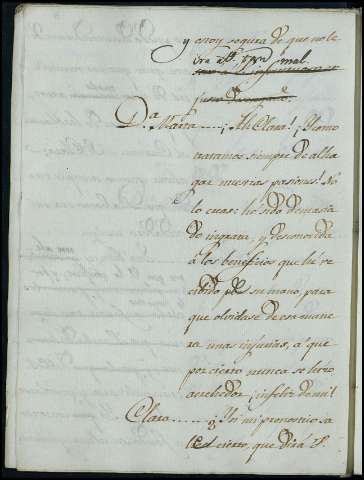 y estoy segura de que no le
ira a Vm. tan mal.
D.ª Maria ..... ¡Ah Clara! ¡Como
tratamos siempre de alha
gar nuestras pasiones! No
lo creas: hé sido demasia
do ingrata, y desconocida
á los beneficios que hé re
cibido por su mano, para
que olvidase de esa mane
ra unas injurias, á que
por cierto nunca se hizo
acrehedor; ¡infeliz de mi!
Clara ..... ¿Si mi pronostico sa
le cierto, que dirá V.